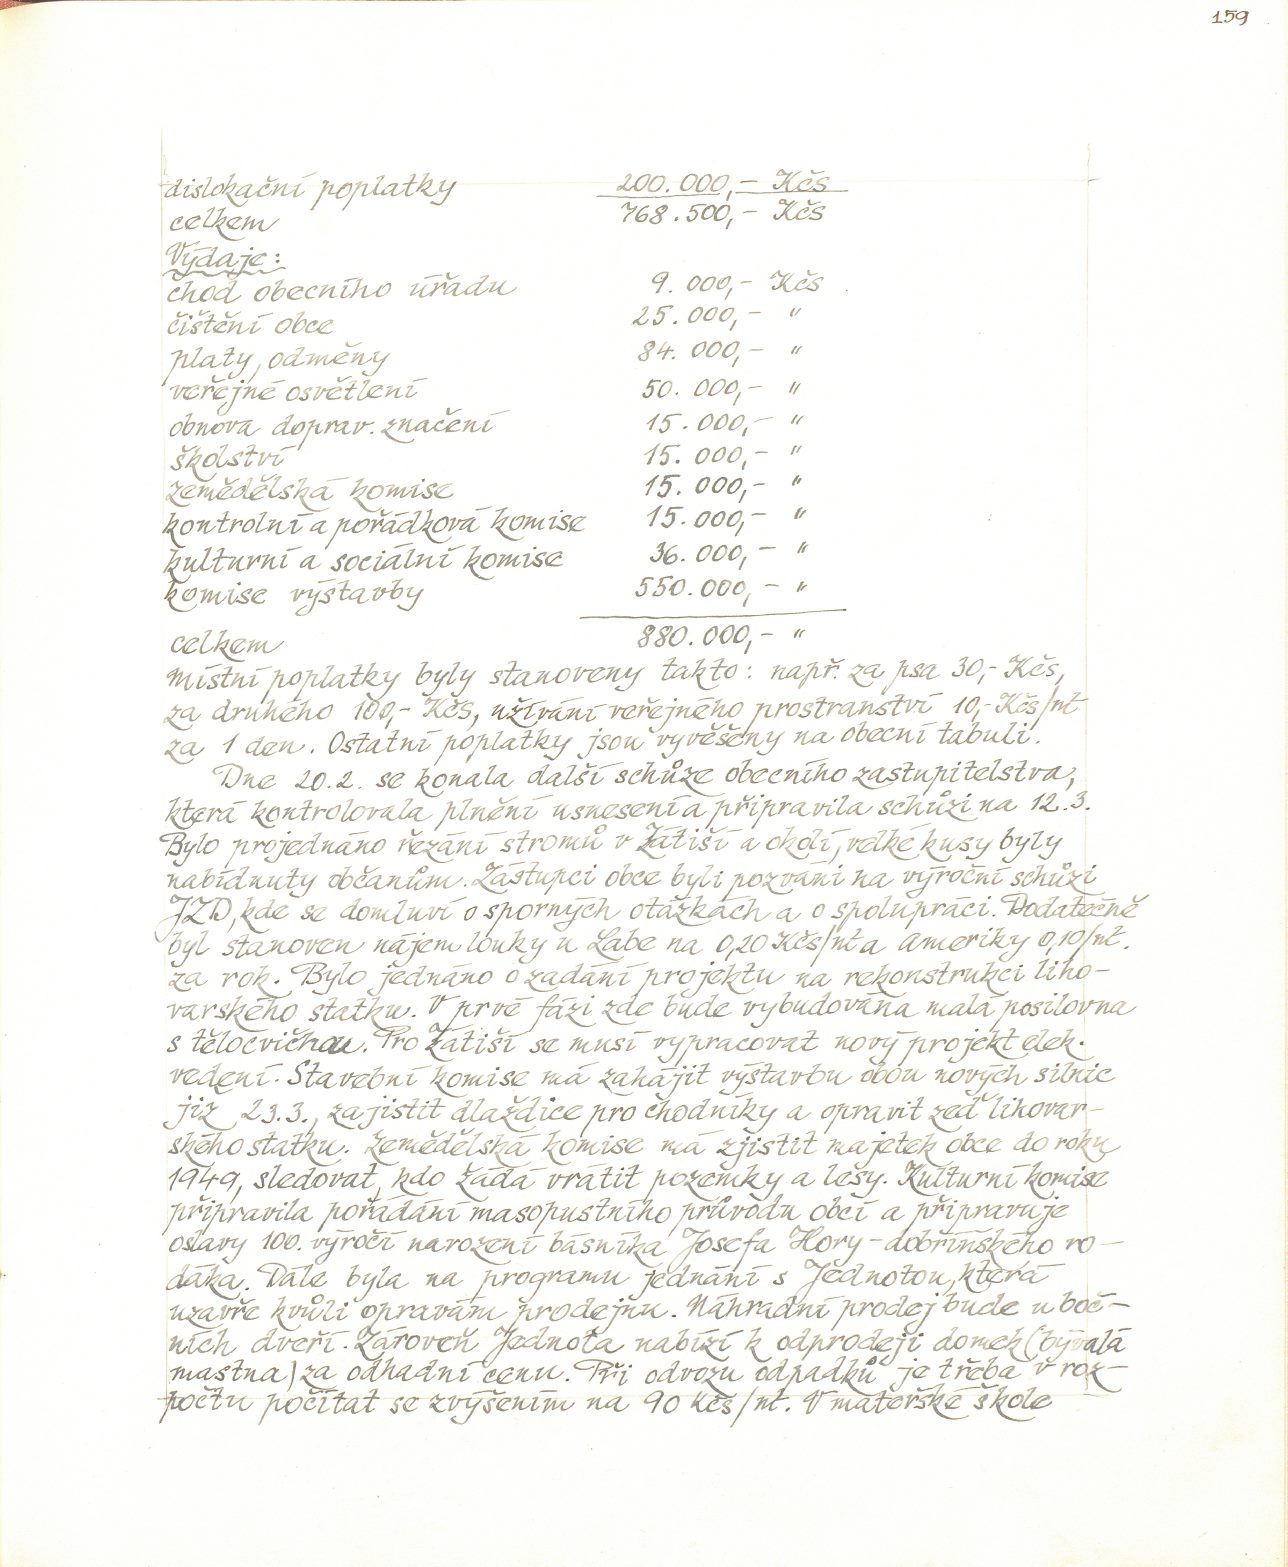 159
dislokační poplatky 200.000,- Kčs
celkem 768.500,- Kčs
Výdaje:
chod obecního úřadu 9.000,- Kčs
čištění obce 25.000,- "
platy, odměny 84.000,- "
veřejné osvětlení 50.000,- "
obnova doprav. značení 15.000,- "
školství 15.000,- "
zemědělská komise 15.000,- "
kontrolní a pořádková komise 15.000,- "
kulturní a sociální komise 36.000,- "
komise výstavby 550.000,- "
celkem 880.000,- "
Místní poplatky byly stanoveny takto: např. za psa 30,- Kčs,
za druhého 100,- Kčs, užívání veřejného prostranství 10,- Kčs/m²
za 1 den. Ostatní poplatky jsou vyvěšeny na obecní tabuli.
Dne 20.2. se konala další schůze obecního zastupitelstva,
která kontrolovala plnění usnesení a připravila schůzi na 12.3.
Bylo projednáno řezání stromů v Zátiší a okolí, velké kusy byly
nabídnuty občanům. Zástupci obce byli pozváni na výroční schůzi
JZD, kde se domluví o sporných otázkách a o spolupráci. Dodatečně
byl stanoven nájem louky u Labe na 0,20 Kčs/m² a Ameriky 0,10/m².
za rok. Bylo jednáno o zadání projektu na rekonstrukci liho-
varského statku. V prvé fázi zde bude vybudována malá posilovna
s tělocvičnou. Pro Zátiší se musí vypracovat nový projekt elek.
vedení. Stavební komise má zahájit výstavbu obou nových silnic
již 23.3., zajistit dlaždice pro chodníky a opravit zeď lihovar-
ského statku. Zemědělská komise má zjistit majetek obce do roku
1949, sledovat, kdo žádá vrátit pozemky a lesy. Kulturní komise
připravila pořádání masopustního průvodu obcí a připravuje
oslavy 100. výročí narození básníka Josefa Hory - dobříňského ro-
dáka. Dále byla na programu jednání s Jednotou, která
uzavře kvůli opravám prodejnu. Náhradní prodej bude u boč-
ních dveří. Zároveň Jednota nabízí k odprodeji domek (bývalá
mastna) za odhadní cenu. Při odvozu odpadků je třeba v roz-
počtu počítat se zvýšením na 90 Kčs/m². V mateřské škole